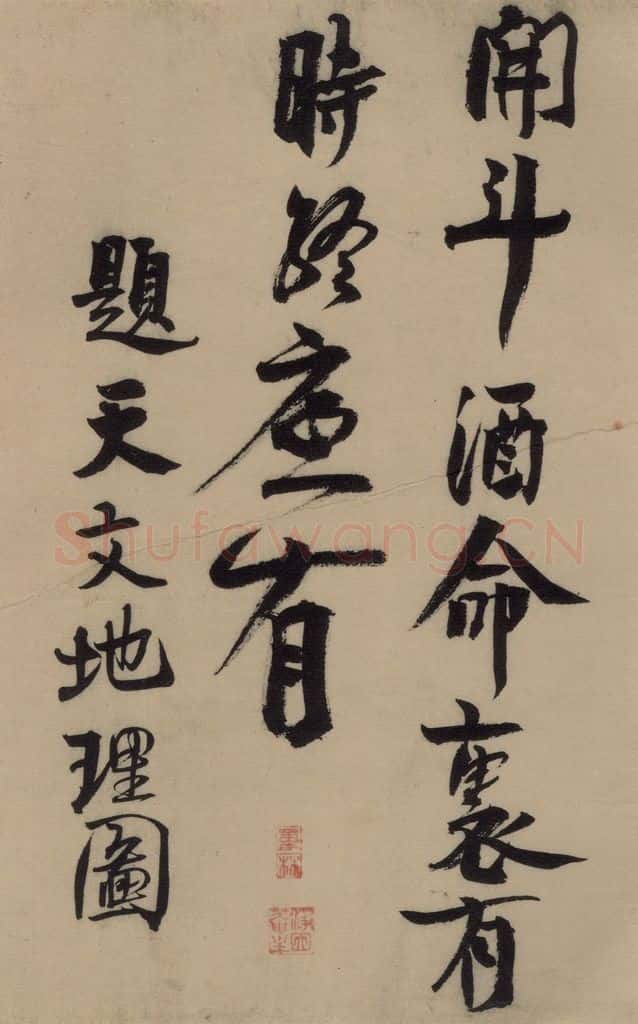 開斗酒命裏有
時終應有
題天文地理圖
Shufawang.CN